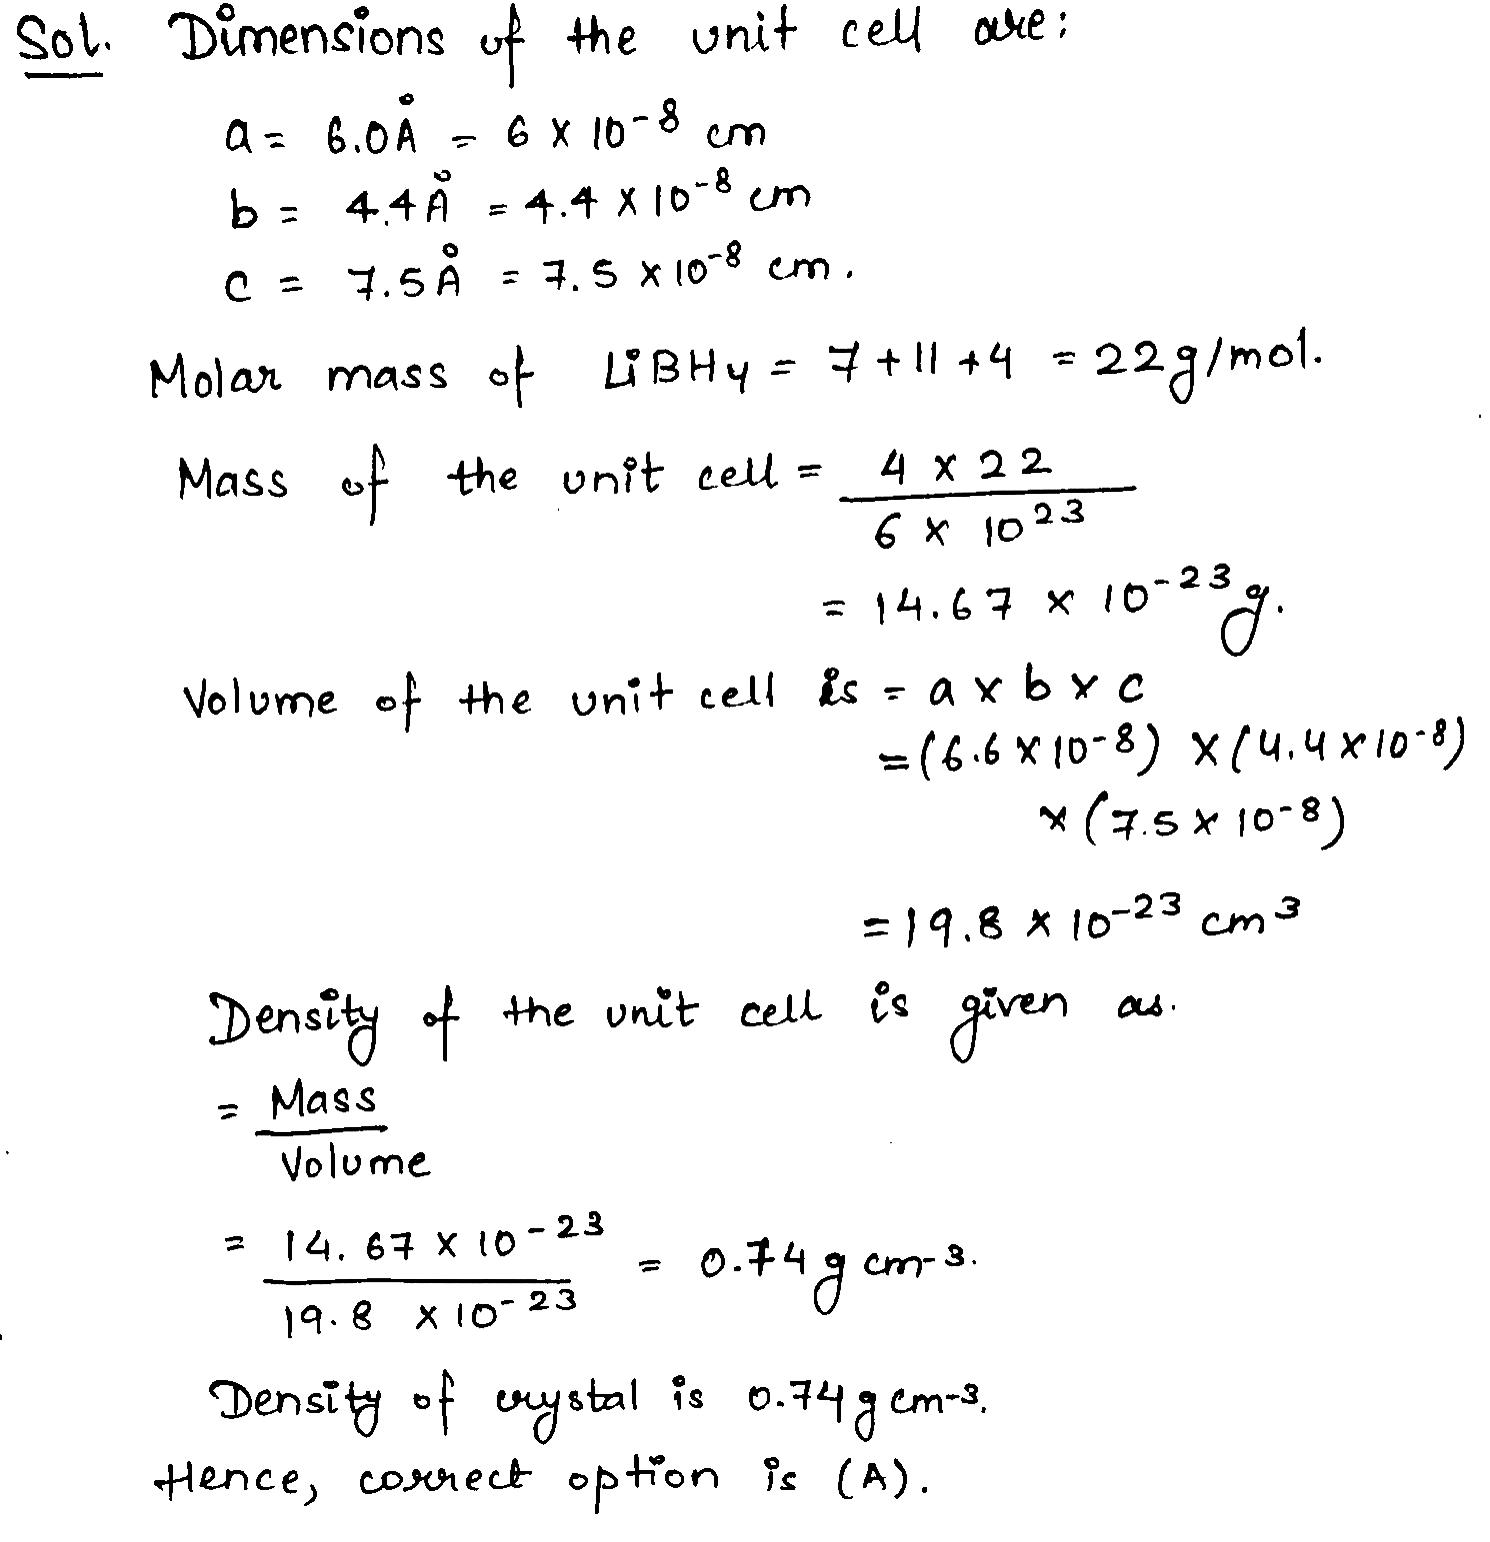 Sol. Dimensions of the unit cell are:
a = 6.0Å = 6 × 10⁻⁸ cm
b = 4.4Å = 4.4 × 10⁻⁸ cm
c = 7.5Å = 7.5 × 10⁻⁸ cm.
Molar mass of LiBH₄ = 7 + 11 + 4 = 22g/mol.
Mass of the unit cell = 4 × 22
6 × 10²³
= 14.67 × 10⁻²³ g.
Volume of the unit cell is = a × b × c
= (6.6 × 10⁻⁸) × (4.4 × 10⁻⁸)
× (7.5 × 10⁻⁸)
= 19.8 × 10⁻²³ cm³
Density of the unit cell is given as.
= Mass
Volume
= 14.67 × 10⁻²³ = 0.74 g cm⁻³.
19.8 × 10⁻²³
Density of crystal is 0.74 g cm⁻³.
Hence, correct option is (A).